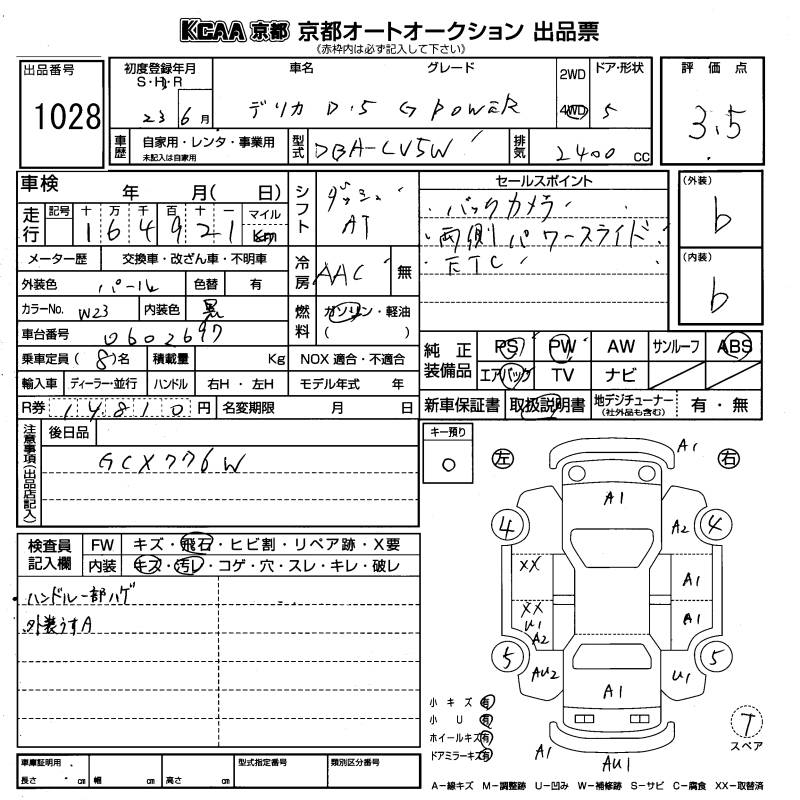 KCAA 京都 京都オートオークション 出品票
(赤枠内は必ず記入して下さい)
出品番号 1028
初度登録年月 S・H・R 23 6月
車名 グレード デリカ D.5 G POWER
2WD 4WD
ドア・形状 5
評価点 3.5
車歴 自家用・レンタ・事業用 未記入は自家用
型式 DBA-LV5W
排気 2400 CC
車検 年 月( 日)
走行 記号 十 万 千 百 十 一 マイル Km
164921
シフト ダッシュ AT
セールスポイント
・バックカメラ
・両側パワースライド
・ETC
(外装) b
(内装) b
メーター歴 交換車・改ざん車・不明車
外装色 パール 色替 有
冷房 AAC 無
カラーNo. W23 内装色 黒
燃料 ガソリン・軽油 ( )
車台番号 0602697
乗車定員(8)名 積載量 Kg NOX 適合・不適合
輸入車 ディーラー・並行 ハンドル 右H・左H モデル年式 年
R券 14810円 名変期限 月 日
純正装備品 PS PW AW サンルーフ ABS
エアバック TV ナビ
新車保証書 取扱説明書 地デジチューナー (社外品も含む) 有・無
注意事項(出品店記入) 後日品
GCX776W
キー預り ○
左 右
検査員記入欄 FW キズ・飛石・ヒビ割・リペア跡・X要
内装 キズ・汚レ・コゲ・穴・スレ・キレ・破レ
・ハンドル一部ハゲ
外装うすA
A1
A1
4 A2 4
XX A1
XX U1 A2 A1
5 AU2 U1 5
A1
A1 AU1
小キズ 有
小U 有
ホイールキズ 有
ドアミラーキズ 有
T スペア
車庫証明用 長さ cm 幅 cm 高さ cm 型式指定番号 類別区分番号
A-線キズ M-調整跡 U-凹み W-補修跡 S-サビ C-腐食 XX-取替済